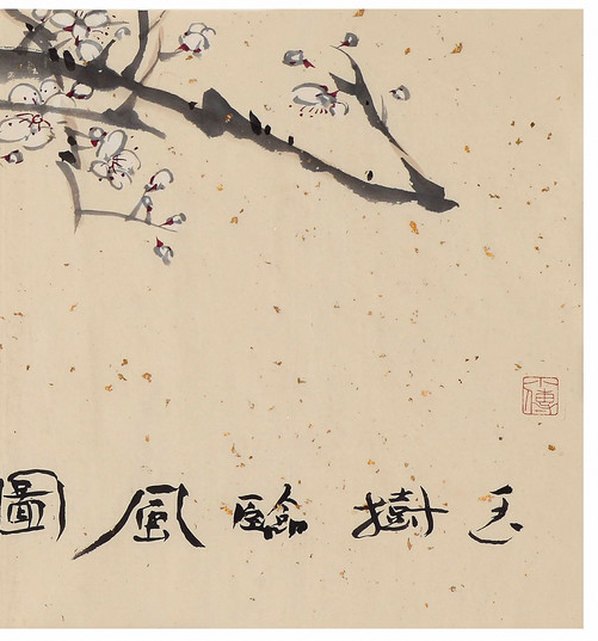 玉樹臨風圖